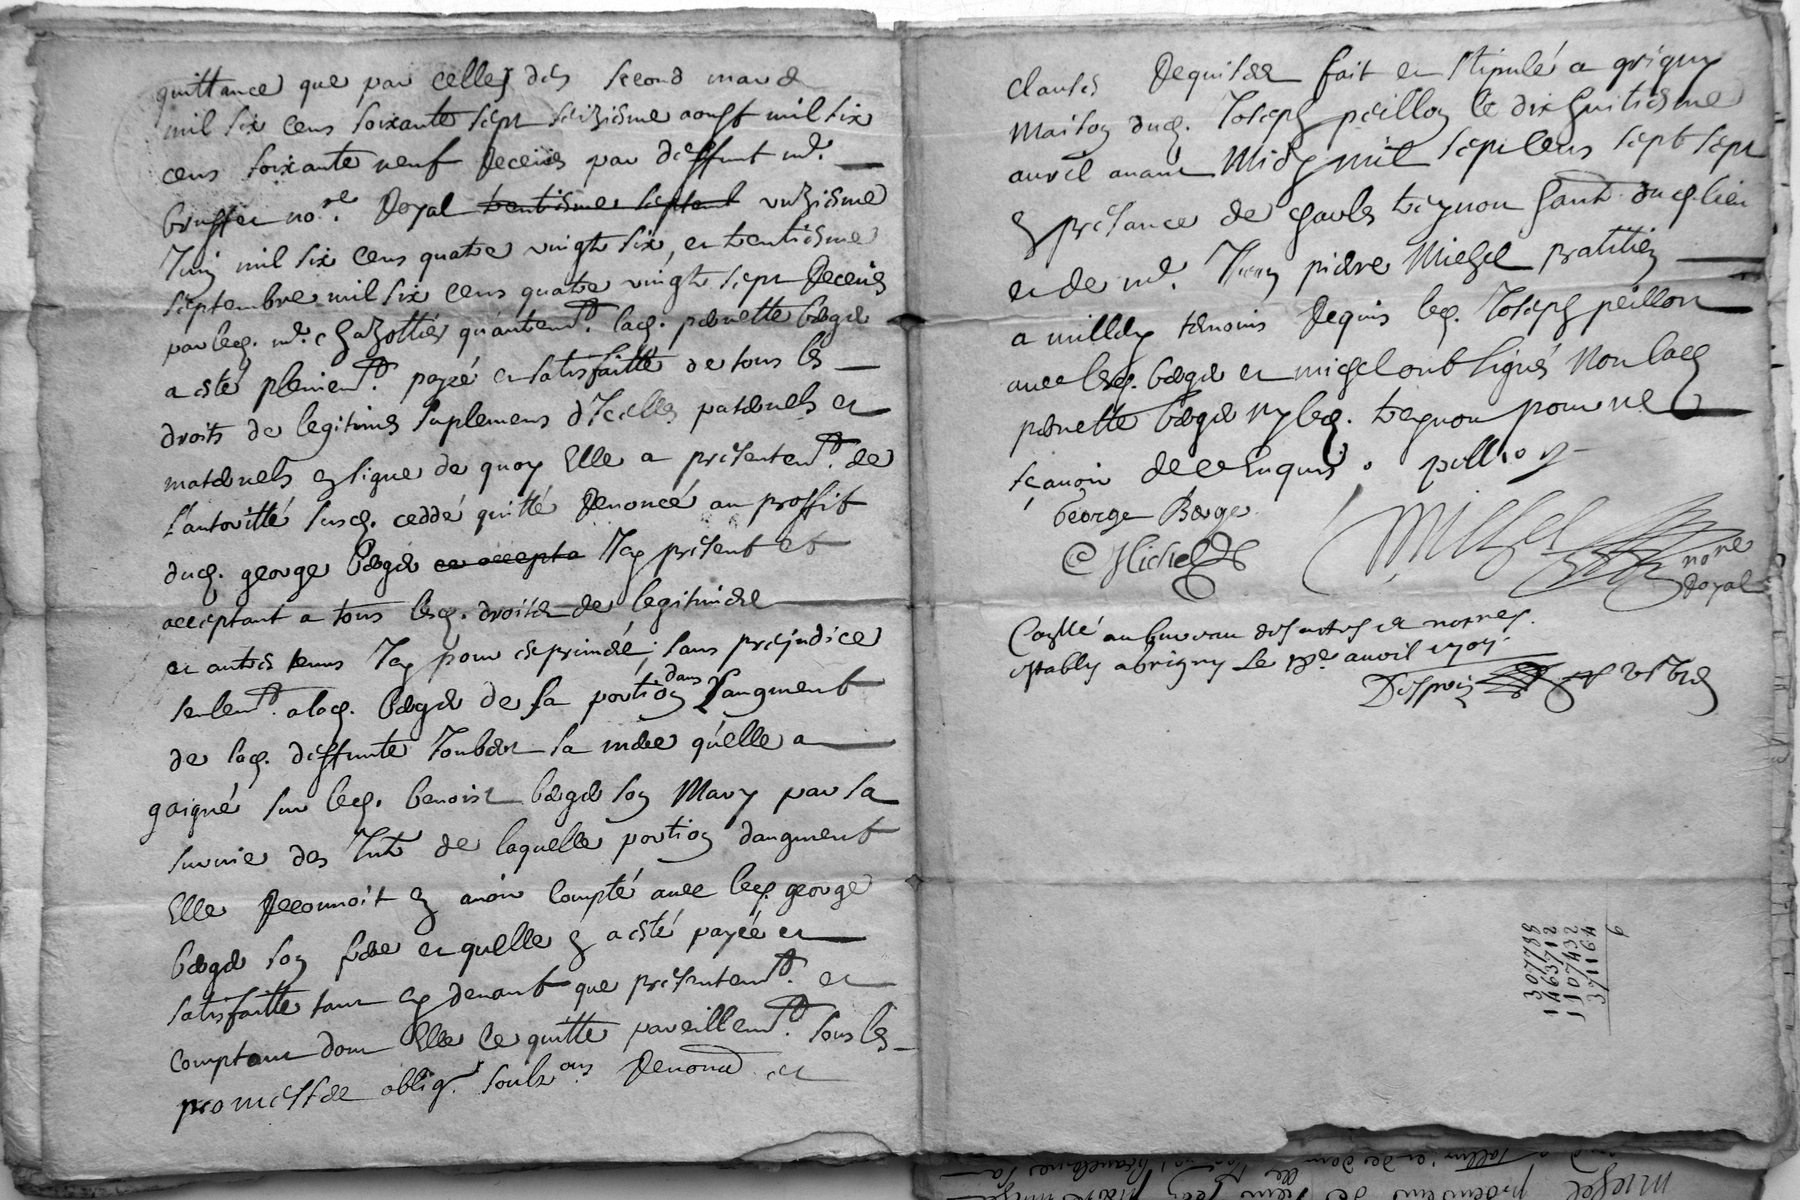 quittance que par celles des second mars
mil six cens soixante sept seiziesme aoust mil six
cens soixante neuf receues par deffunt me.
no.re royal trentiesme septemb unziesme
Juin mil six cens quatre vingt six, et trentiesme
septembre mil six cens quatre vingt sept receues
par led. me. Chazottier quautem.t lad. pernette berger
a esté pleinem.t payée et satisfaitte de tous les
droits de legitimes suplemens d'Icelles paternels et
maternels en signe de quoy Elle a presentem.t de
l'autoritté susd. ceddé quitté Renoncé au proffit
dud. george berger ce accepta Icy present et
acceptant a tous lesd. droits de legitimes
et autres tenus Icy pour exprimés; sans prejudice
seulem.t a lad. berger de sa portion dans l'augment
de lad. deffunte Joubert sa mere qu'elle a
gaigné sur led. benoist berger son Mary par sa
survie des Int. de laquelle portion daugment
Elle Reconnoit en avoir compté avec led. george
berger son frere et quelle en a esté payée et
satisfaitte tant cy devant que presentem.t et
comptant dont Elle le quitte pareillem.t sous les
promesses oblig. soubz.ons Renond. et
clauses Requises fait et stipulé a grigny
Maison dud. Joseph peillon le dix huitiesme
avril avant Midy mil sept cens sept
en presance de charles treynon hant. dud. lieu
et de me. Jean pierre Michel pratitien
a millery temoins Requis led. Joseph peillon
avec lesd. berger et michel ont signés Non lad.
pernette berger ny led. treynon pour ne
sçavoir de ce Enquis. peillon
george Berger
Michel
Michel
no.re
Royal
Con.llé au bureau des actes et no.res
estably a Grigny Le avril 1707
307788
1463712
1107432
371164
6